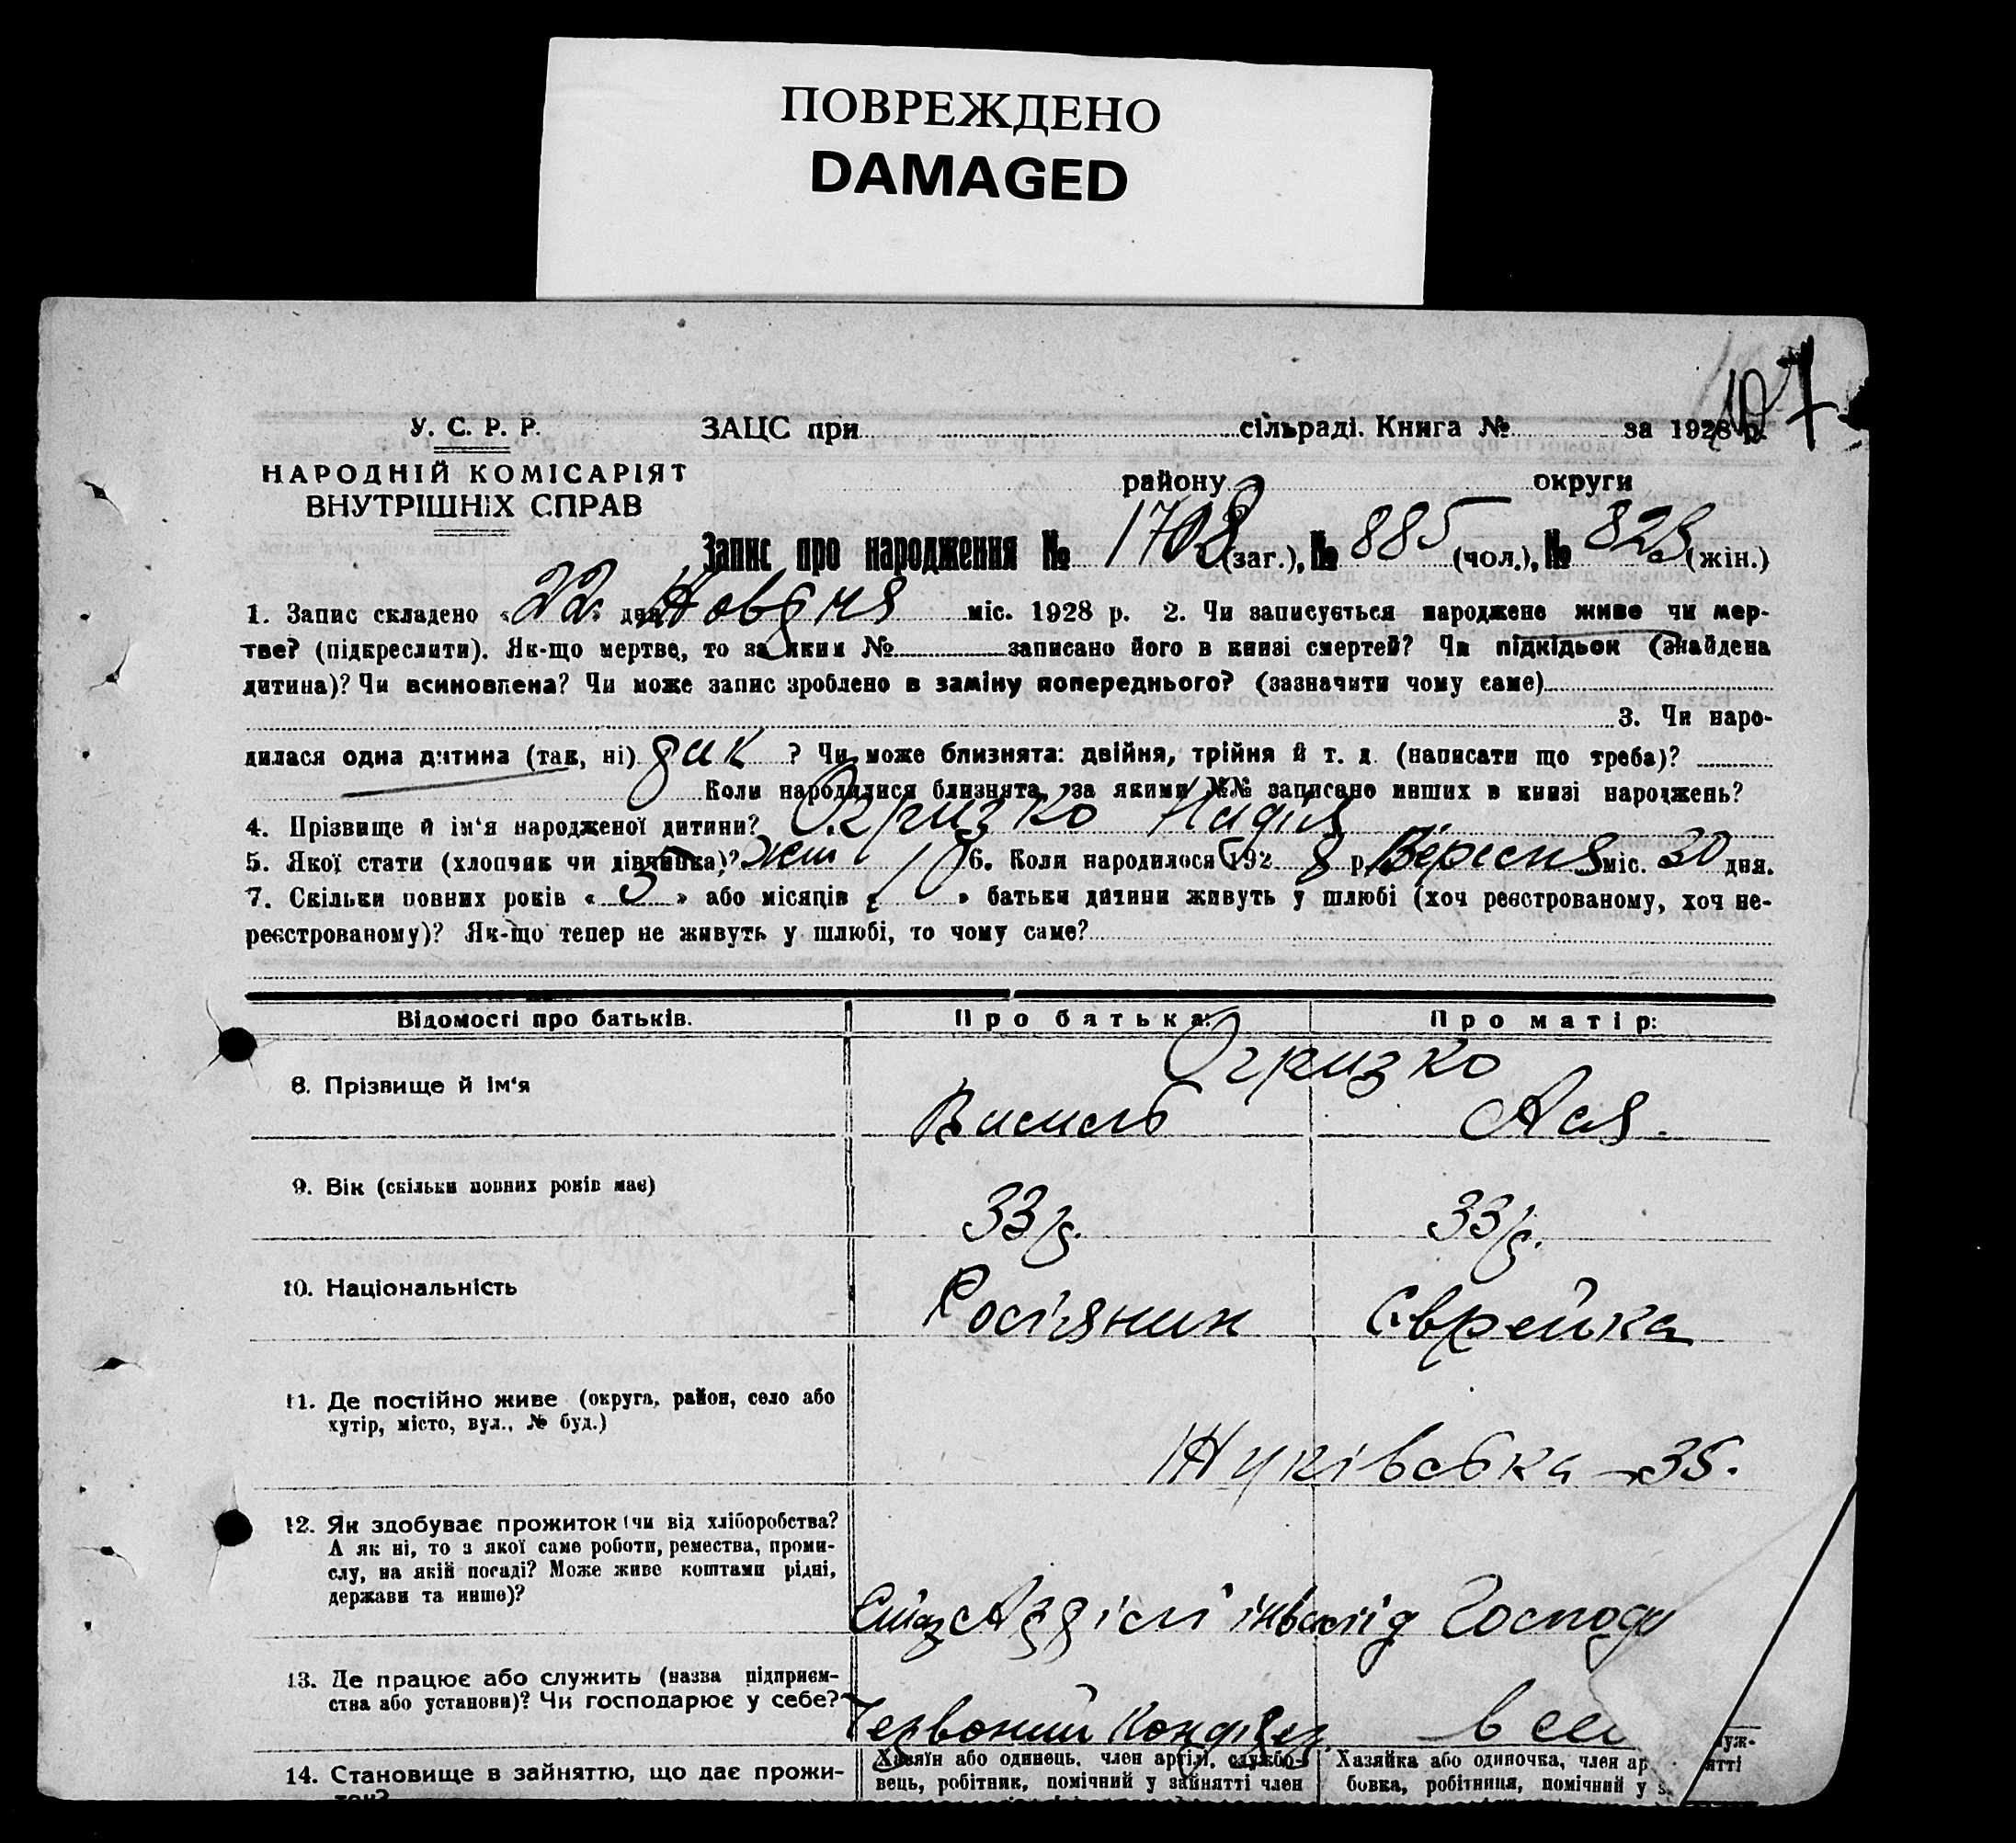 ПОВРЕЖДЕНО
DAMAGED
107
У. С. Р. Р. ЗАЦС при сільраді. Книга № за 1928 р.
НАРОДНІЙ КОМІСАРІЯТ району округи
ВНУТРІШНІХ СПРАВ
Запис про народження № 1708 (заг.), № 885 (чол.), № 823 (жін.)
1. Запис складено « 22 » дня Жовтня міс. 1928 р. 2. Чи записується народжене живе чи мер-
тве? (підкреслити). Як-що мертве, то за яким № записано його в книзі смертей? Чи підкідьок (знайдена
дитина)? Чи всиновлена? Чи може запис зроблено в заміну попереднього? (зазначити чому саме)
3. Чи наро-
дилася одна дитина (так, ні) так ? Чи може близнята: двійня, трійня й т. д. (написати що треба)?
Коли народилися близнята, за якими №№ записано инших в книзі народжень?
4. Прізвище й ім‘я народженої дитини? Огризко Надія
5. Якої стати (хлопчик чи дівчинка)? жін 6. Коли народилося 1928 р. Вересня міс. 30 дня.
7. Скільки повних років « 5 » або місяців « 10 » батьки дитини живуть у шлюбі (хоч реєстрованому, хоч не-
реєстрованому)? Як-що тепер не живуть у шлюбі, то чому саме?
Відомості про батьків. Про батька: Про матір:
Огризко
8. Прізвище й ім‘я Василь Ася.
9. Вік (скільки повних років має) 33 р. 33 р.
10. Національність Росіянин Єврейка
11. Де постійно живе (округа, район, село або
хутір, місто, вул., № буд.) Жуківська - 35.
12. Як здобуває прожиток (чи від хліборобства?
А як ні, то з якої саме роботи, ремества, проми-
слу, на якій посаді? Може живе коштами рідні,
держави та инше)? інвалід Господ
13. Де працює або служить (назва підприєм-
ства або установи)? Чи господарює у себе? Червоний Кондитер в се
14. Становище в зайняттю, що дає прожи- Хазяїн або одинець, член артілі, службо- Хазяйка або одиночка, член ар уж-
ток? вець, робітник, помічний у зайнятті член бовка, робітниця, помічний у з ятті